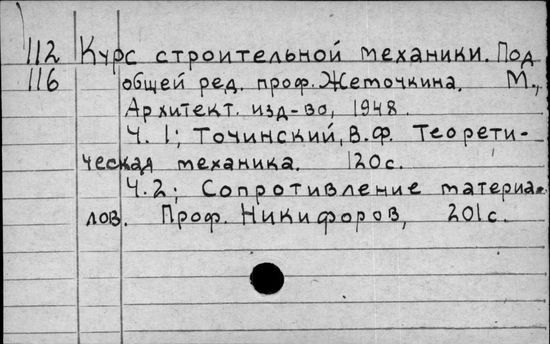 112 Курс строительной механики. Под
116 общей ред. проф. Жемочкина. М.,
Архитект. изд-во, 1948.
Ч. 1; Точинский, В.Ф. Теорети-
ческая механика. 120с.
Ч.2; Сопротивление материа-
лов. Проф. Никифоров, 201с.